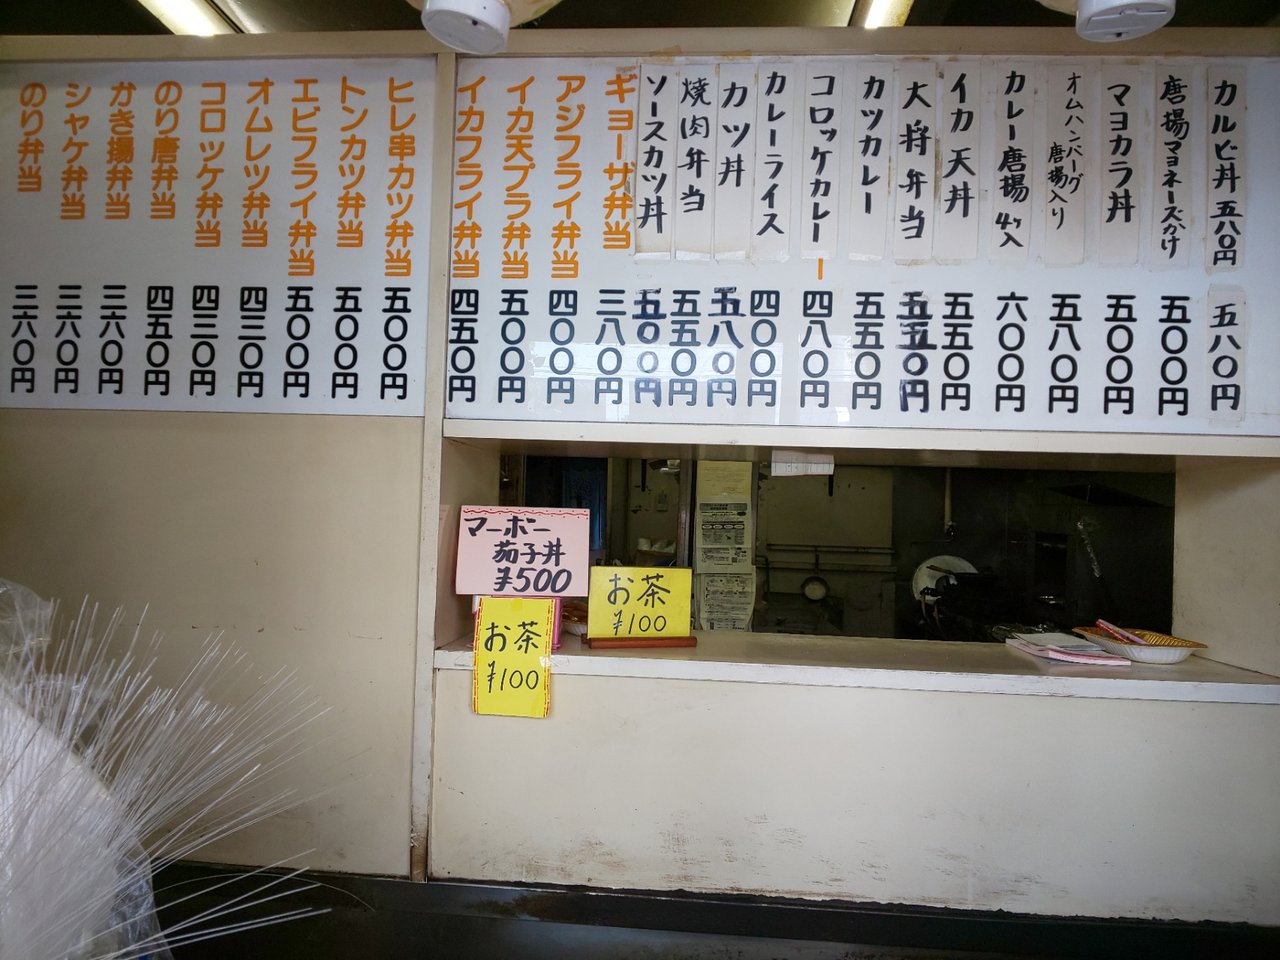 カルビ丼 五八〇円
五八〇円
唐揚マヨネーズかけ
五〇〇円
マヨカラ丼
五〇〇円
オムハンバーグ
唐揚入り
五八〇円
カレー唐揚 4ヶ入
六〇〇円
イカ天丼
五五〇円
大将弁当
五五〇円
カツカレー
五五〇円
コロッケカレー
四八〇円
カレーライス
四〇〇円
カツ丼
五八〇円
焼肉弁当
五五〇円
ソースカツ丼
五〇〇円
ギョーザ弁当
三八〇円
アジフライ弁当
四〇〇円
イカ天プラ弁当
五〇〇円
イカフライ弁当
四五〇円
ヒレ串カツ弁当
五〇〇円
トンカツ弁当
五〇〇円
エビフライ弁当
五〇〇円
オムレツ弁当
四三〇円
コロッケ弁当
四三〇円
のり唐弁当
四五〇円
かき揚弁当
三六〇円
シャケ弁当
三六〇円
のり弁当
三六〇円
マーボー
茄子丼
¥500
お茶
¥100
お茶
¥100